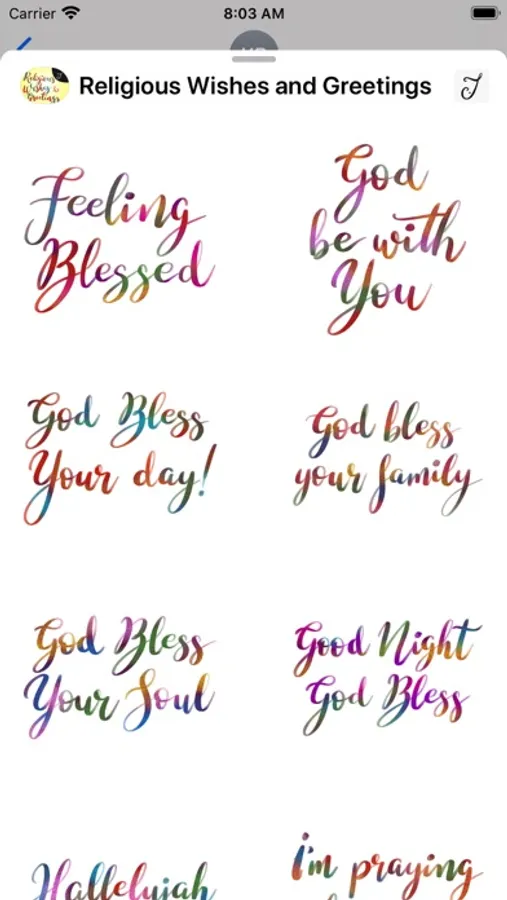 Carrier 8:03 AM
Religious Wishes and Greetings
Feeling
Blessed
God
be with
You
God Bless
Your day!
God bless
your family
God Bless
Your Soul
Good Night
God Bless
Hallelujah
i'm praying